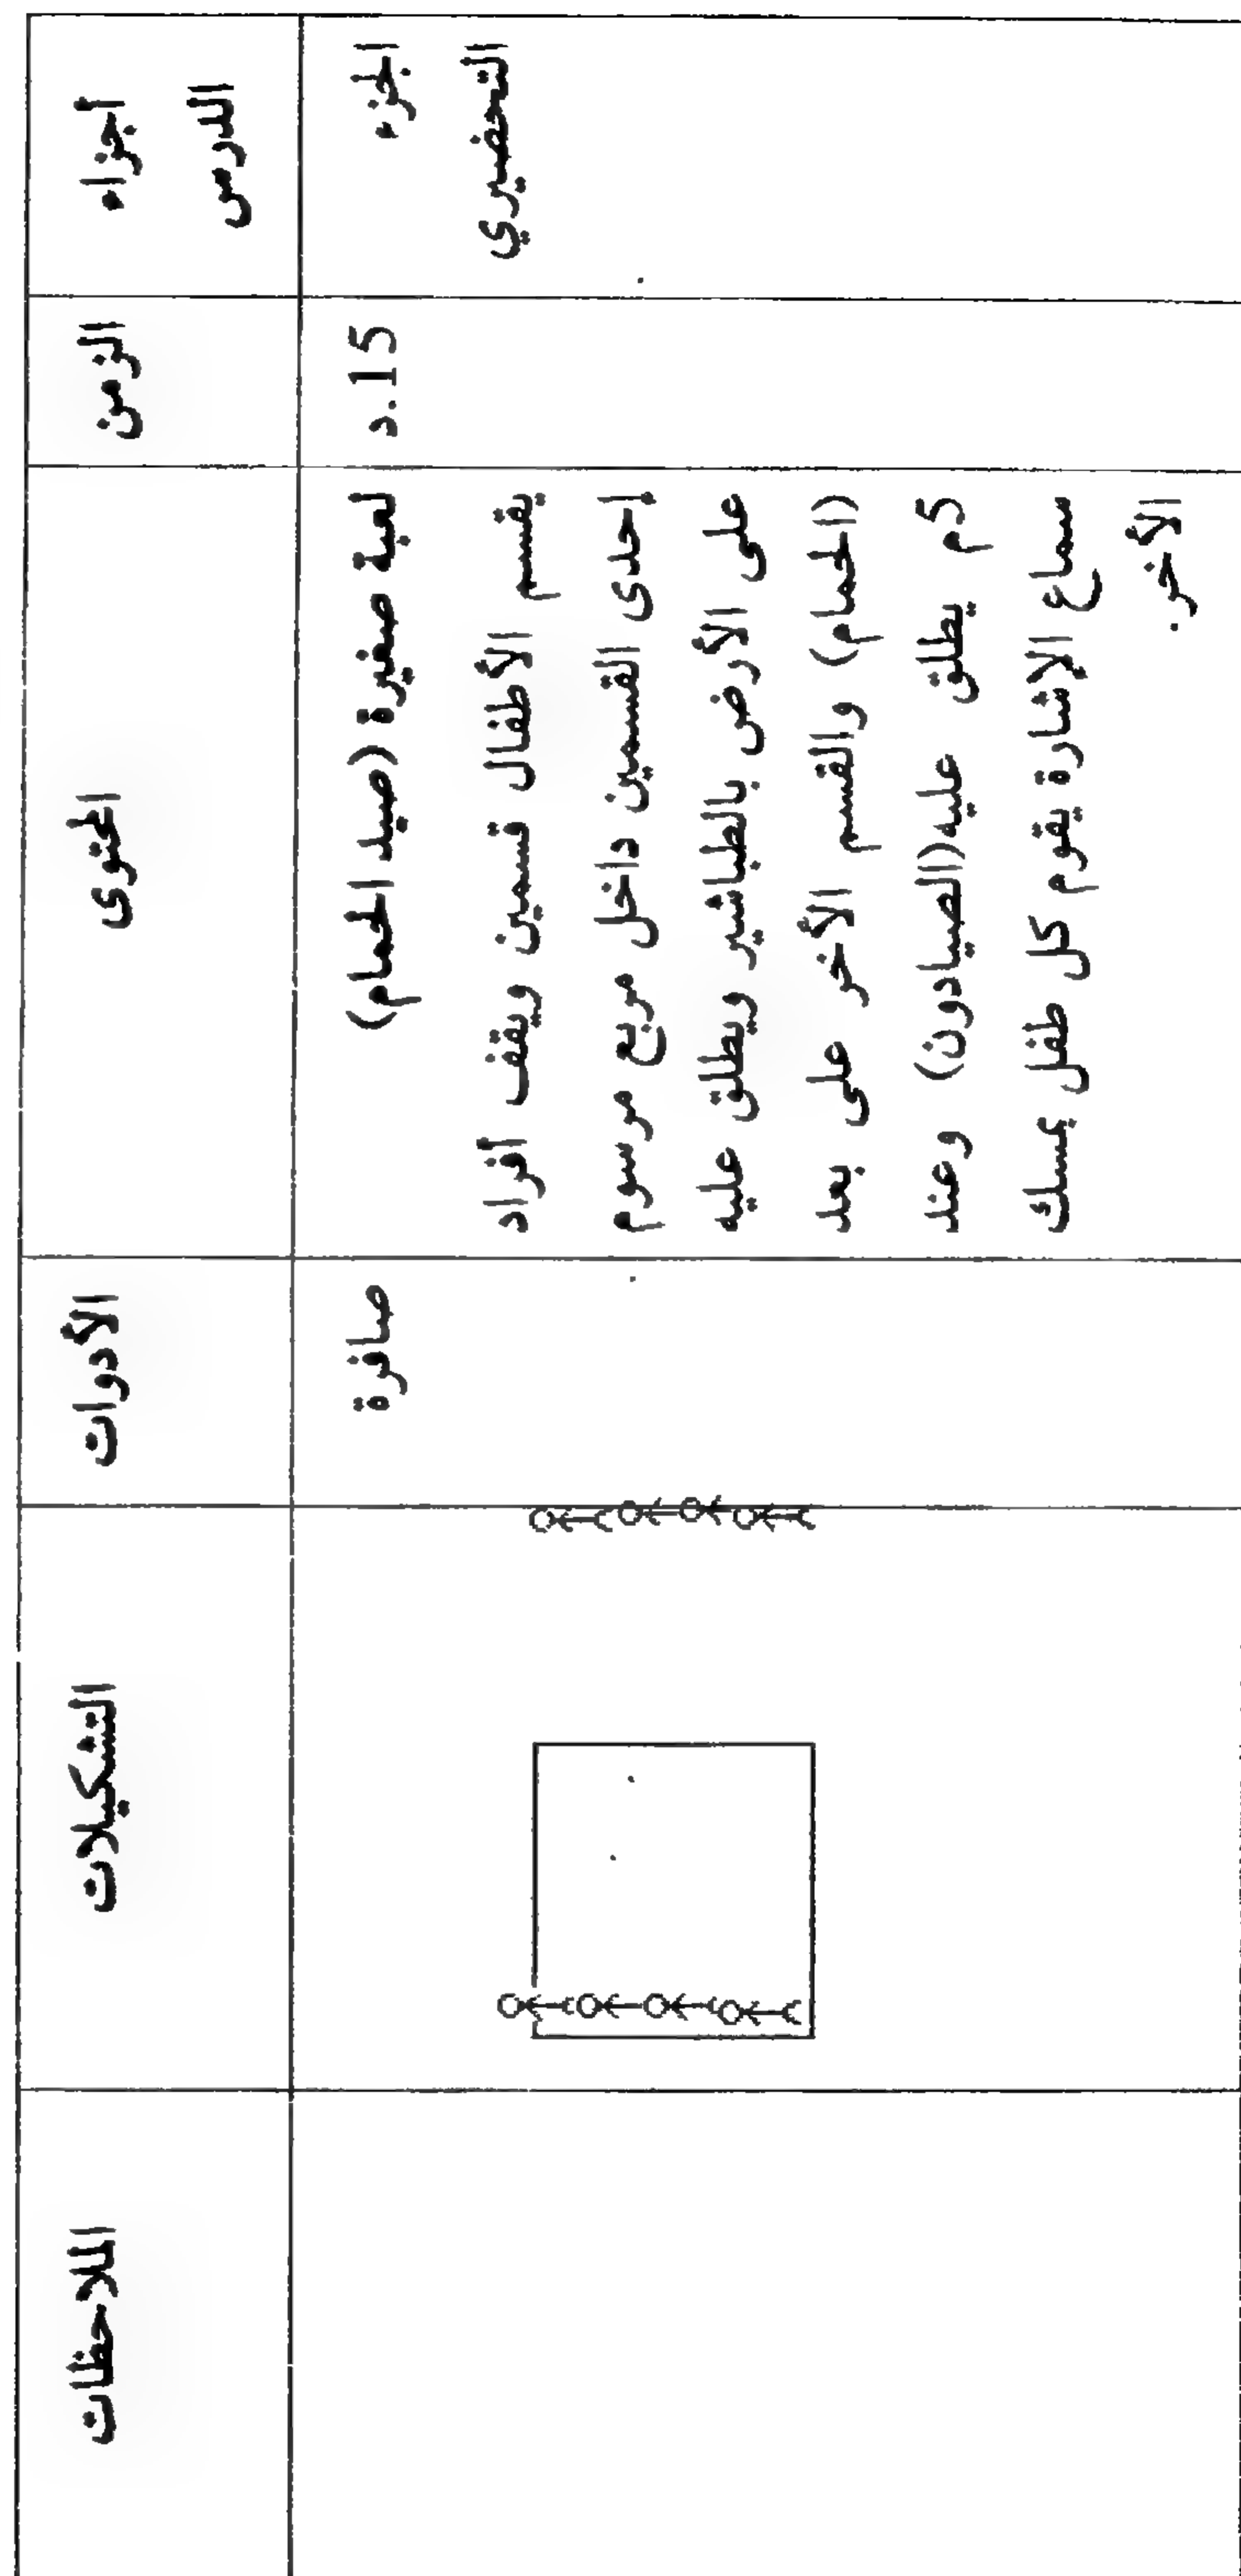 أجزاء
الدرس
الزمن
المحتوى
الأدوات
التشكيلات
الملاحظات
الجزء
التحضيري
15.د
لعبة صغيرة (صيد الحمام)
يقسم الأطفال قسمين ويقف أفراد
إحدى القسمين داخل مربع مرسوم
على الأرض بالطباشير ويطلق عليه
(الحمام) والقسم الأخر على بعد
5م يطلق عليه(الصيادون) وعند
سماع الإشارة يقوم كل طفل بمسك
الأخر.
صافرة